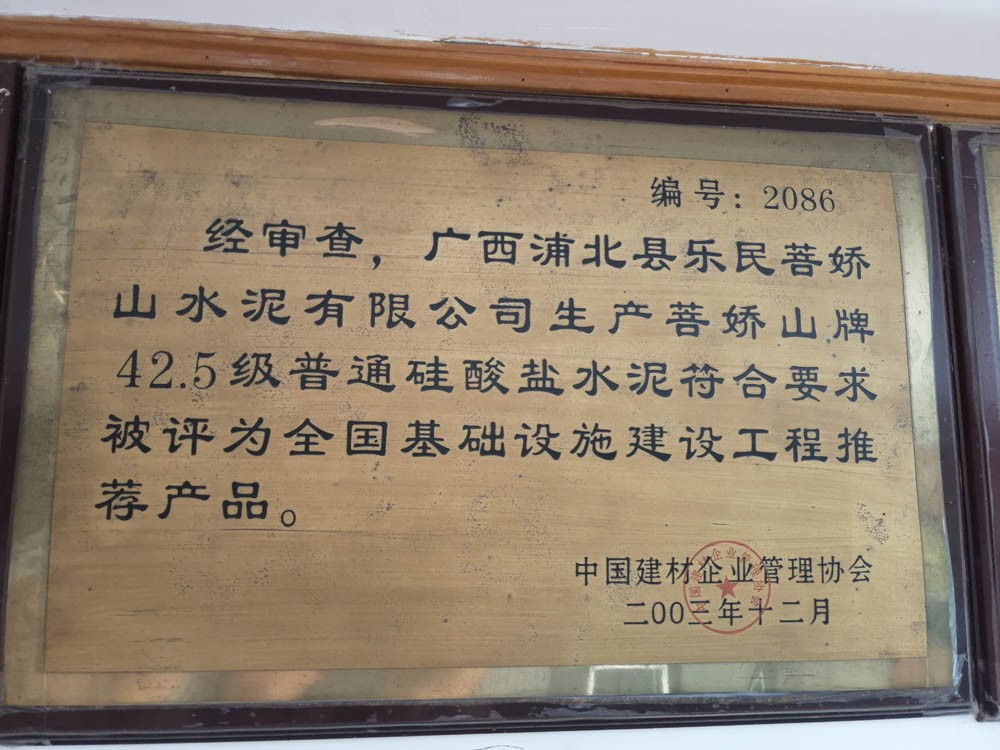 编号：2086
经审查，广西浦北县乐民菩娇
山水泥有限公司生产菩娇山牌
42.5级普通硅酸盐水泥符合要求
被评为全国基础设施建设工程推
荐产品。
中国建材企业管理协会
二00三年十二月